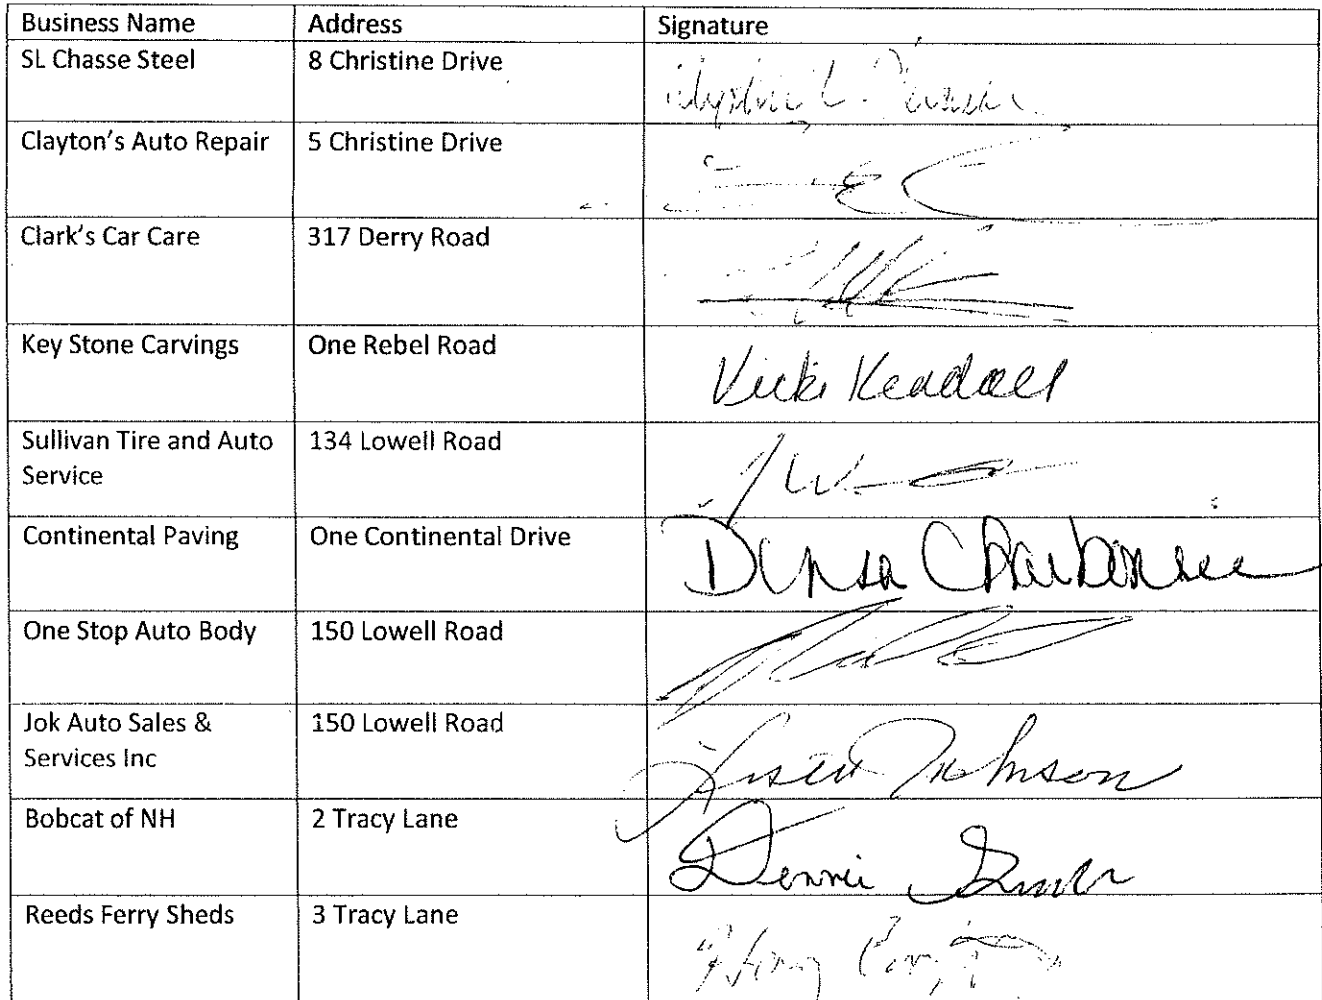 Business Name Address Signature
SL Chasse Steel 8 Christine Drive
Clayton's Auto Repair 5 Christine Drive
Clark's Car Care 317 Derry Road
Key Stone Carvings One Rebel Road Vicki Kendall
Sullivan Tire and Auto 134 Lowell Road
Service
Continental Paving One Continental Drive
One Stop Auto Body 150 Lowell Road
Jok Auto Sales & 150 Lowell Road Johnson
Services Inc
Bobcat of NH 2 Tracy Lane
Reeds Ferry Sheds 3 Tracy Lane